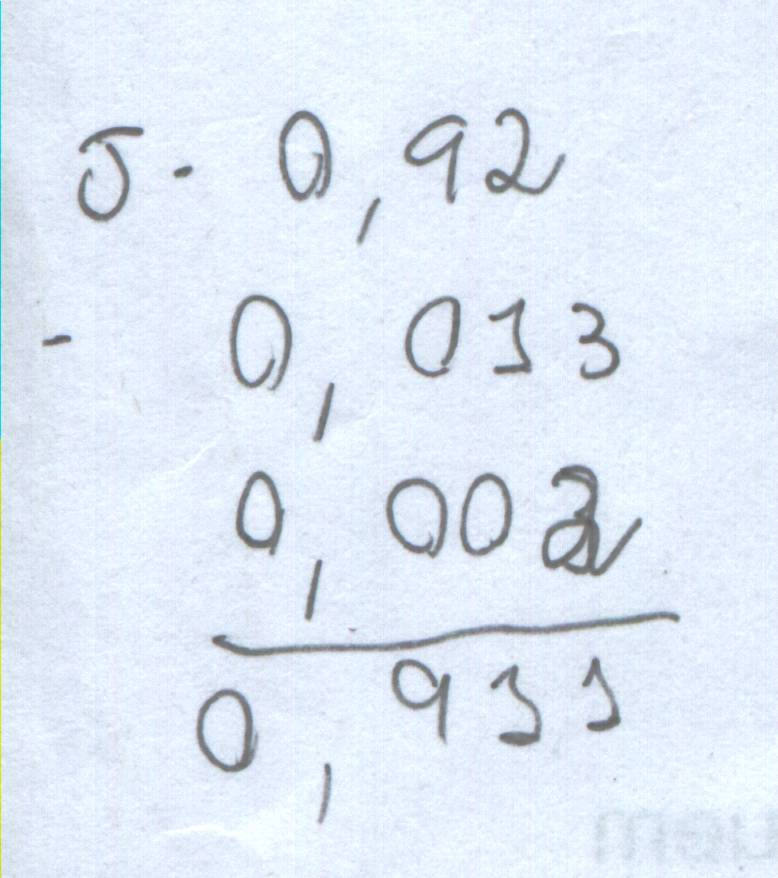 5. 0,92
- 0,013
0,002
0,911